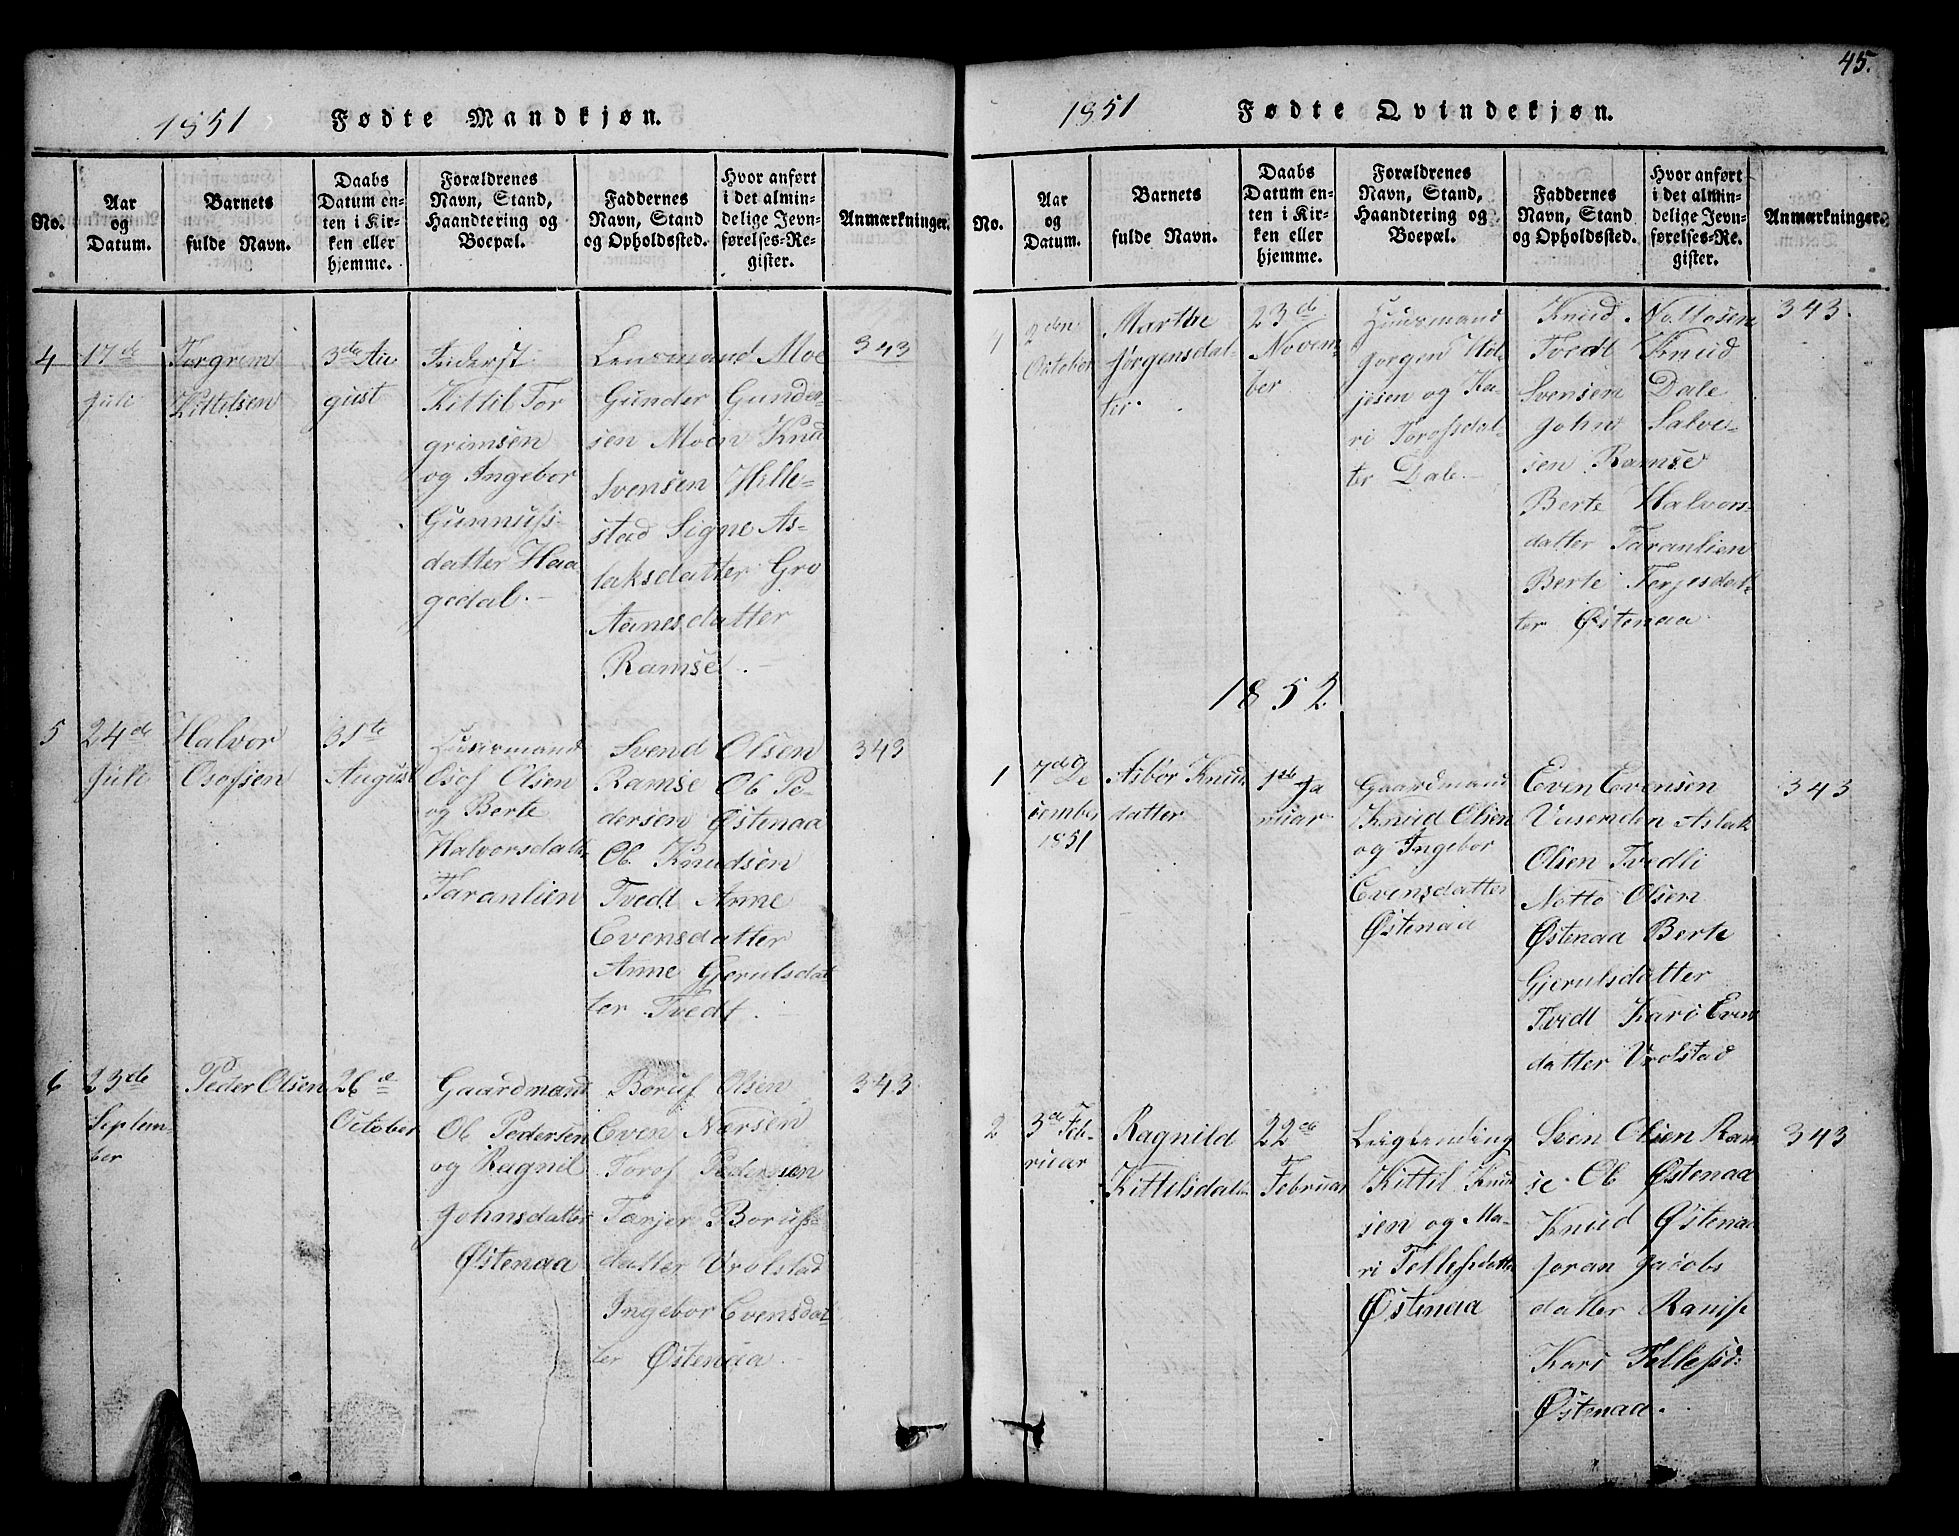 1851 Fødte Mandkjøn.
No.
Aar
og
Datum.
Barnets
fulde Navn.
Daabs
Datum en-
ten i Kir-
ken eller
hjemme.
Forældrenes
Navn, Stand,
Haandtering og
Boepæl.
Faddernes
Navn, Stand
og Opholdssted.
Hvor anført
i det almin-
delige Jevn-
førelses-Re-
gister.
Anmærkninger.
4
17de
Juli
Torgrem
Kittelsen
3die Au
gust
Inderst
Kittil Tor
grimsen
og Ingebor
Gunnufs-
datter Haa
gedal.
Lensmand Moe
Gunder Gunder-
sen Moen Knud
Svensen Helle-
stad Signe As-
laksdatter Gro
Aanesdatter
Ramse.
343
5
24de
Juli
Halvor
Osofsen
31te
August
Huusmand
Osof Olsen
og Berte
Halvorsdatt.
Taranlien
Svend Olsen
Ramse Ol Pe-
dersen Østenaa
Ol Knudsen
Tvedt Anne
Evensdatter
Anne Gjerulsdat
ter Tvedt.
343
6
23de
Septem-
ber
Peder Olsen
26de
October
Gaardmand
Ol Pedersen
og Ragnil
Johnsdatter
Østenaa
Boruf Olsen
Even Nersen
Torof Pedersen
Tarjer Borufs-
datter Vrolstad
Ingebor Evensdat-
ter Østenaa
343
45.
1851 Fødte Qvindekjøn.
No.
Aar
og
Datum.
Barnets
fulde Navn.
Daabs
Datum en-
ten i Kir-
ken eller
hjemme.
Forældrenes
Navn, Stand,
Haandtering og
Boepæl.
Faddernes
Navn, Stand
og Opholdssted.
Hvor anført
i det almin-
delige Jevn-
førelses-Re-
gister.
Anmærkninger.
2den
October
Marthe
Jørgensdat-
ter.
23de
Novem-
ber
Huusmand
Jørgen
jesen og Ka-
ri Torofsdat-
ter Dale.
Knud Nottosen
Tvedt Knud
Svensen Dale
John Salve-
sen Ramse
Berte Halvors-
datter Taranlien
Berte Terjesdat-
ter Østenaa
343.
1852
1
7de De
cember
1851
Asbør Knuds
datter
1ste Ja
nuar
Gaardmand
Knud Olsen
og Ingebor
Evensdatter
Østenaa
Even Evensen
Aslak
Olsen Tvedli
Notto Olsen
Østenaa Berte
Gjerulsdatter
Tvedt Kari Even
datter Vrolstad
343
2
3de Feb-
ruar
Ragnild
Kittilsdatt.
22de
Februar
Kittil Knud
sen og Ma-
ri Tellefsdatter
Østenaa
Sven Olsen Ram
se. Ol Østenaa
Knud Østenaa
Joran Jacobs
datter Ramse
Kari Tellefsd:
Østenaa.
343